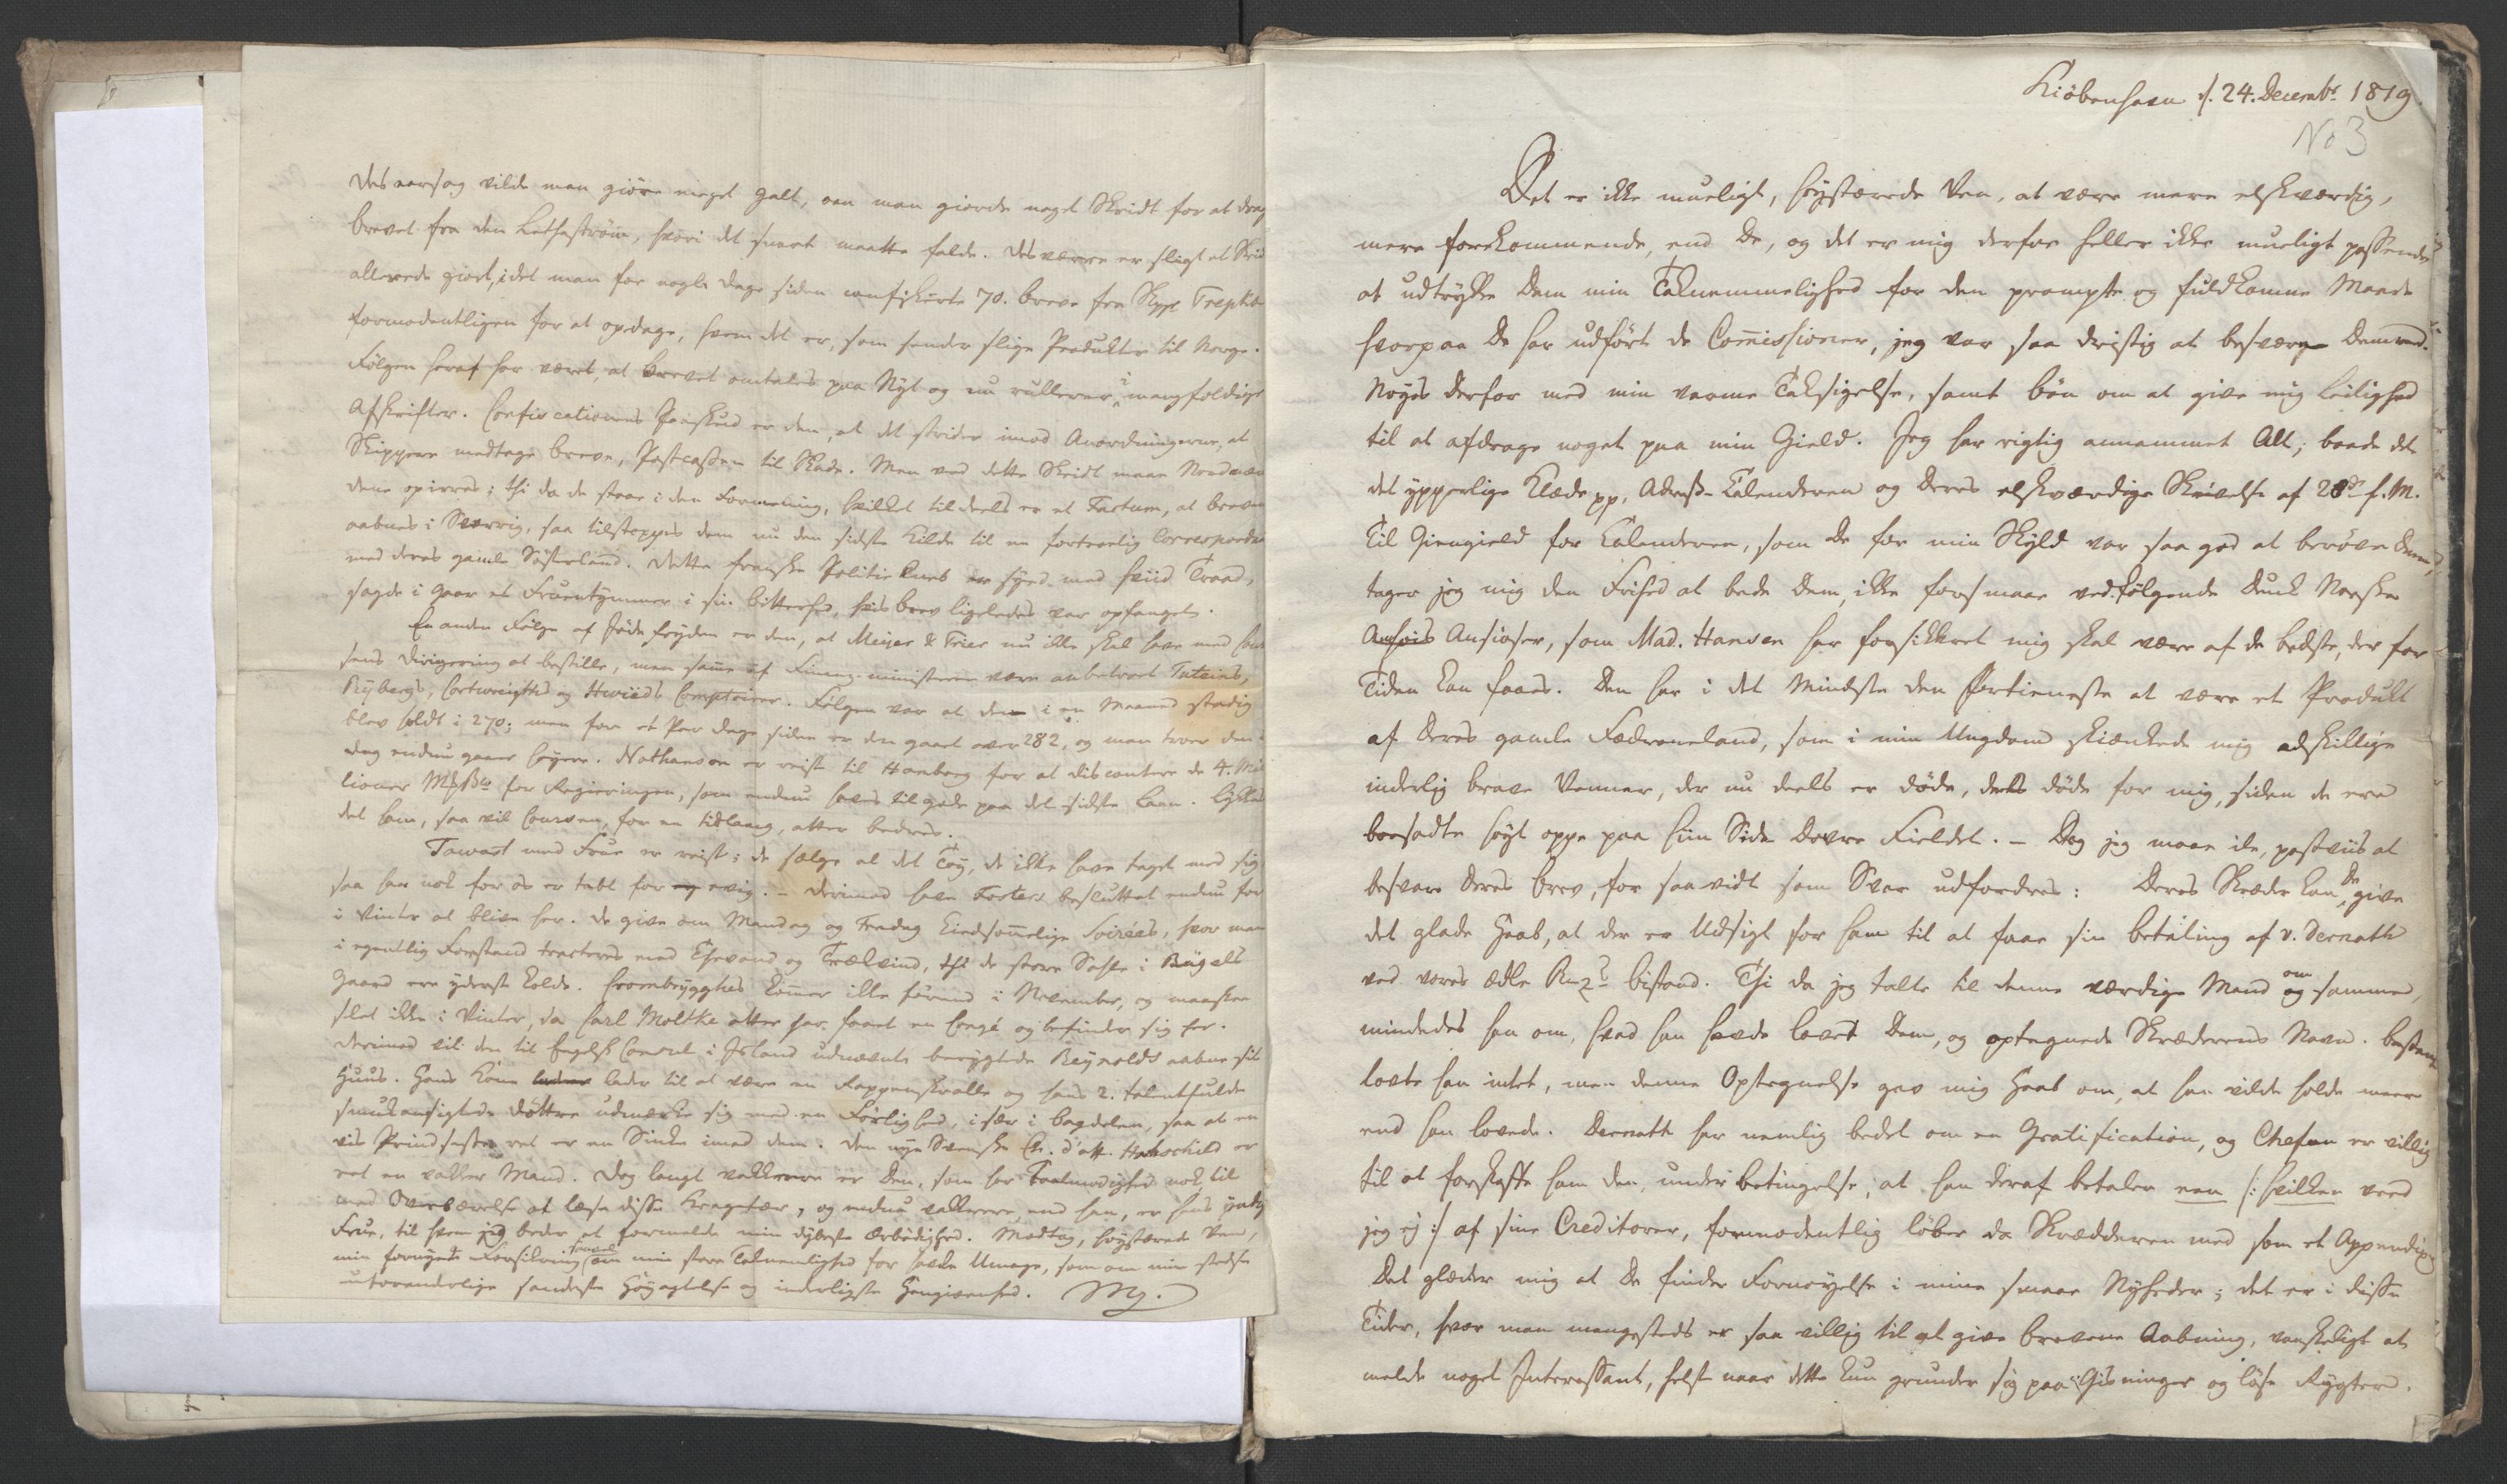 Desaarsag vilde man giöre meget galt, om man giorde noget Skridt for at drag
brevet fra den Lethestrøm, hvori det snart maatte falde. Desværre er sligt et Skrid
allerede giort, idet man for nogle Dage siden confiskerte 70. breve fra Skpp. Trepka
formodentligen for at opdage, hvem det er, som sender slige Produkter til Norge.
Følgen heraf har været, at brevet omtales paa Nyt og nu rullerer i mangfoldige
Afskrifter. Confiscationens Paaskud er den, at det strider imod Anordningerne, at
Skippere medtage breve, Postcassen til Skade. Men ved dette Skridt maae Nordmæn
dene opirres; thi da de staae i den Formening, hvilket tildeels er et Factum, at breven
aabnes i Sverrig, saa tilstoppes dem nu den sidste Kilde til en fortroelig Correspondan
med deres gamle Søsterland. Dette franske Politie Kneb er syed med hviid Traad,
sagde i Gaar et Fruentymmer i sin bitterhed, hvis brev ligeledes var opfanget.
En anden Følge af Jødefeyden er den, at Meyer & Trier nu ikke skal have med Cour
sens Dirigering at bestille, men samme af Finanz-ministeren være anbetroet Tuteins,
Rybergs, Cortwrigths og Hwiids Comptoirer. Følgen var at den i en Maaned stadig
blev holdt i 270; men for et Par Dage siden er den gaaet over 282, og man troer den i
dag endnu gaaer høyere. Nathanson er reist til Hamborg for at discontere de 4. Mil
lioner Mk Bco for Regieringen, som endnu haves tilgode paa det sidste Laan. Lykkes
det ham, saa vil Coursen, for en tidlang, atter bedres.
Tawast med Frue er reist; de sælge al det Tøy, de ikke have taget med sig
saa har nok for os er tabt for evig. – Derimod have Fosters besluttet endnu for
i Vinter at blive her. De give om Mandag og Fredag Eiendommelige Soirées, hvor man
i egentlig Forstand tracteres med Thevand og Trækvind, thi de store Sahle i Bügels
Gaard ere yderst kolde. Frombrygghes kommer ikke førend i November, og maaskee
slet ikke i Vinter, da Carl Moltke atter har faaet en Congé og befinder sig her.
Derimod vil den til Engelsk Consul i Island udnævnte berygtede Reynolds aabne sit
Huus. Hans Kone lader til at være en Rappenskralle og hans 2. talentfulde
smukansigtede Døttre udmærke sig med en Førlighed, især i bagdelen, saa at en
vis Prindsesse ret er en Sinke imod dem. Den nye Svenske Ch. d'aff. Hochschild er
ret en vakker Mand. Dog langt vakkrere er Den, som har Taalmodighed nok til
med Overbærelse at læse disse Kragetæer, og endnu vakkrere, end han, er hans
Frue, til hvem jeg beder at formelde min dybeste Ærbødighed. Modtag, høystærede Ven,
min fornyede Forsikring saavel om min store Taknemlighed for havde Umage, som om min stedse
uforanderlige sandeste Høyagtelse og inderligste Hengivenhed. My.
Kiöbenhavn d. 24. Decembr. 1819.
No 3
Det er ikke mueligt, høystærede Ven, at være mere elskværdig,
mere forekommende, end De, og det er mig derfor heller ikke mueligt passende
at udtrykke Dem min Taknemmelighed for den prompte og fuldkomne Maade
hvorpaa De har udført de Commissioner, jeg var saa dristig at besværge Dem med.
Nøyes derfor med min varme Taksigelse, samt bøn om at give mig Leilighed
til at afdrage noget paa min Gield. Jeg har rigtig annammet Alt; baade det
det ypperlige Klæde pp, Adress-Calenderen og Deres elskværdige Skrivelse af 28de f. M.
Til Giengield for Calenderen, som De for min Skyld var saa god at berøve Dem,
tager jeg mig den Frihed at bede Dem, ikke forsmaae vedfølgende Dunk Norske
Anchois Ansioser, som Mad. Hansen har forsikkret mig skal være af de bedste, der for
Tiden kan faaes. Den har i det Mindste den Fortieneste at være et Produkt
af Deres gamle Fædreneland, som i min Ungdom skienkede mig adskillige
inderlig brave Venner, der nu deels er døde, deels døde for mig, siden de ere
bosadte høyt oppe paa hiin Side Dovre Fieldet. – Dog jeg maae ile, postviis at
besvare Deres brev, for saavidt som Svar udfordres: Deres Skræder kan De give
det glade Haab, at der er Udsigt for ham til at faae sin betaling af v. Dernath
ved vores ædle bistand. Thi da jeg talte til denne værdige Mand om og sammes,
mindedes han om, hvad han havde lovet Dem, og optegnede Skræderens Navn. bestemt
lovte han intet, men denne Optegnelse gav mig Haab om, at han vilde holde meere
end han lovede. Dernath har nemlig bedet om en Gratification, og Chefen er villig
til at forskaffe ham den, under betingelse, at han deraf betaler een /: hvilken veed
jeg ej :/ af sine Creditorer, formodentlig løber da Skrædderen med som et Appendix
Det glæder mig at De finder Fornøyelse i mine smaae Nyheder; det er i disse
Tider, hvor man mangesteds er saa villig til at give brevene Aabning, vanskeligt at
melde noget Interessant, helst naar dette kun grunder sig paa Gisninger og løse Rygter.